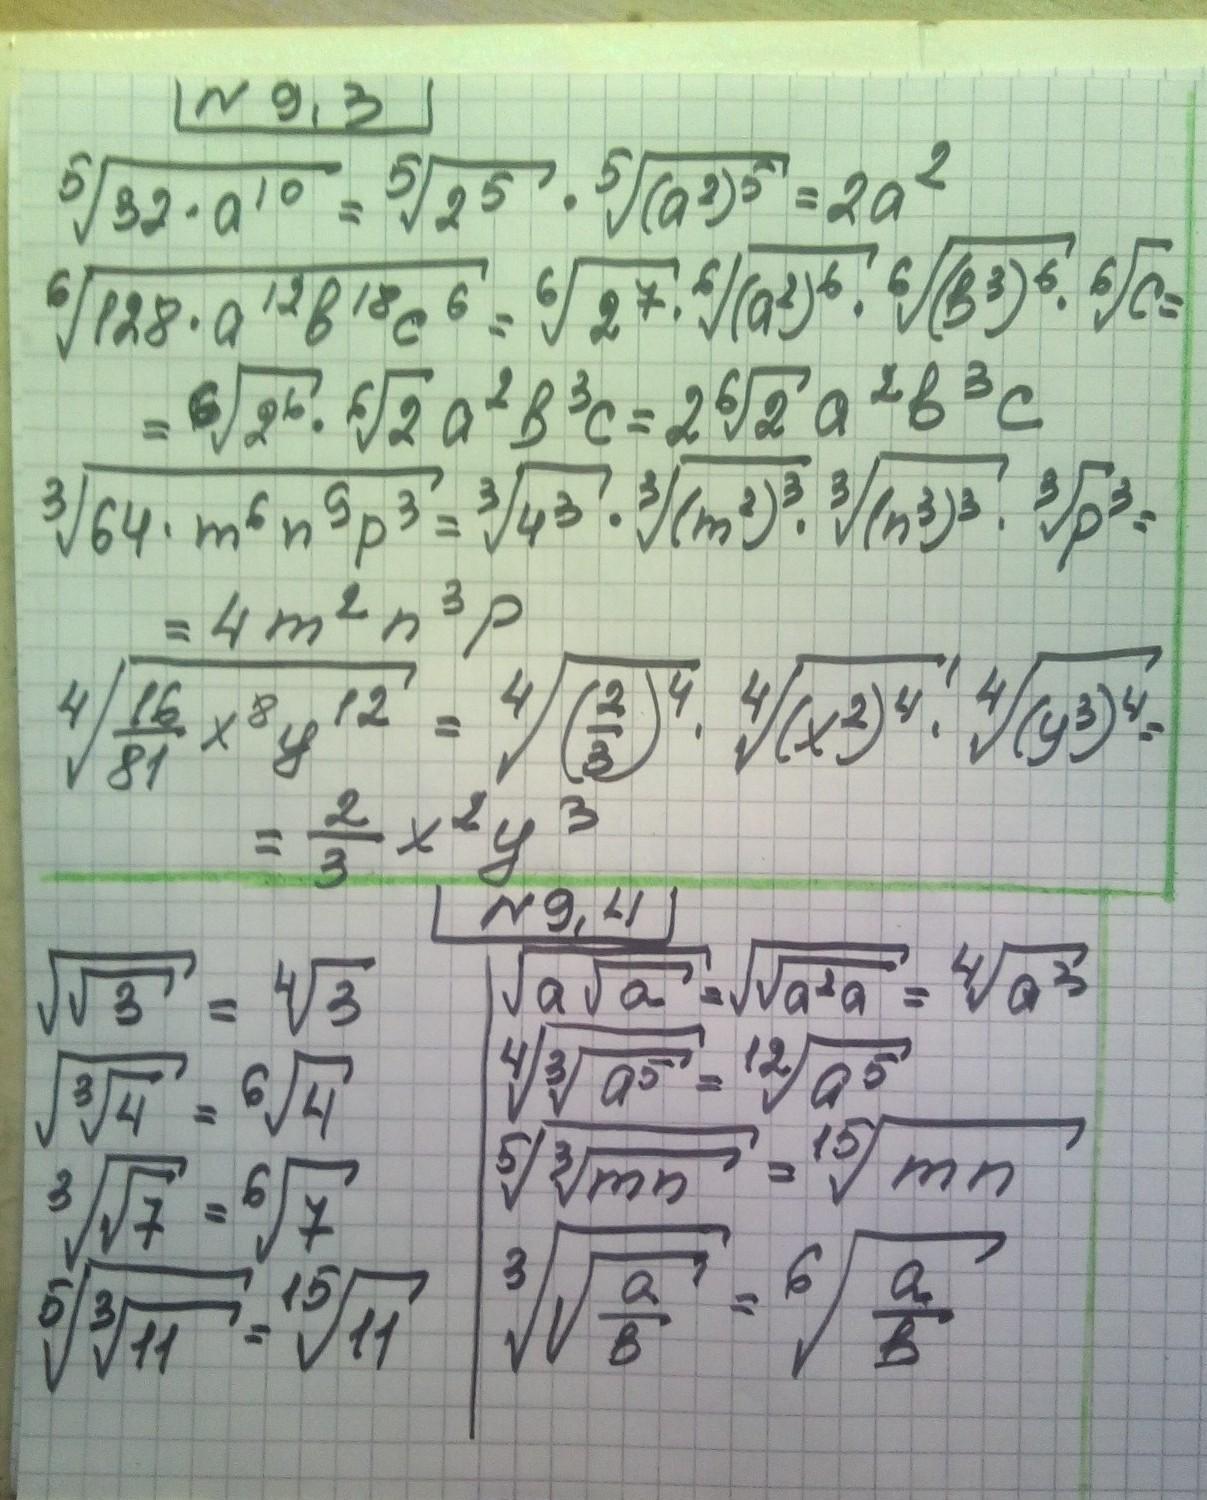 N 9,3
⁵√(32·a¹⁰) = ⁵√(2⁵) · ⁵√((a²)⁵) = 2a²
⁶√(128·a¹²b¹⁸c⁶) = ⁶√(2⁷) · ⁶√((a²)⁶) · ⁶√((b³)⁶) · ⁶√c =
= ⁶√(2⁶) · ⁶√2 a²b³c = 2 ⁶√2 a²b³c
³√(64·m⁶n⁹p³) = ³√(4³) · ³√((m²)³) · ³√((n³)³) · ³√(p³) =
= 4m²n³p
⁴√(16/81 x⁸y¹²) = ⁴√((2/3)⁴) · ⁴√((x²)⁴) · ⁴√((y³)⁴) =
= 2/3 x²y³
N 9,4
√(√3) = ⁴√3
√(³√4) = ⁶√4
³√(√7) = ⁶√7
⁵√(³√11) = ¹⁵√11
√(a√a) = √(√(a²a)) = ⁴√(a³)
⁴√(³√(a⁵)) = ¹²√(a⁵)
⁵√(³√(mn)) = ¹⁵√(mn)
³√(√(a/b)) = ⁶√(a/b)